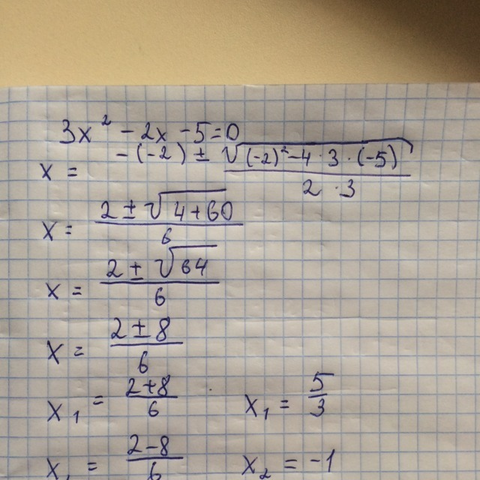 3x² - 2x - 5 = 0
x = (-(-2) ± √((-2)² - 4 · 3 · (-5))) / (2 · 3)
x = (2 ± √(4 + 60)) / 6
x = (2 ± √64) / 6
x = (2 ± 8) / 6
x₁ = (2 + 8) / 6    x₁ = 5/3
x₂ = (2 - 8) / 6    x₂ = -1